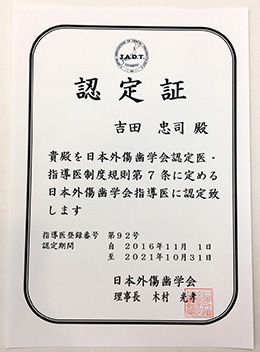 J.A.D.T.
認定証
吉田 忠司 殿
貴殿を日本外傷歯学会認定医・
指導医制度規則第7条に定める
日本外傷歯学会指導医に認定致
します
指導医登録番号 第92号
認定期間 自 2016年11月 1日
至 2021年10月31日
日本外傷歯学会
理事長 木村 光孝